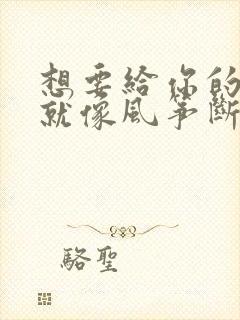 想要給你的
就像風箏斷
駱聖